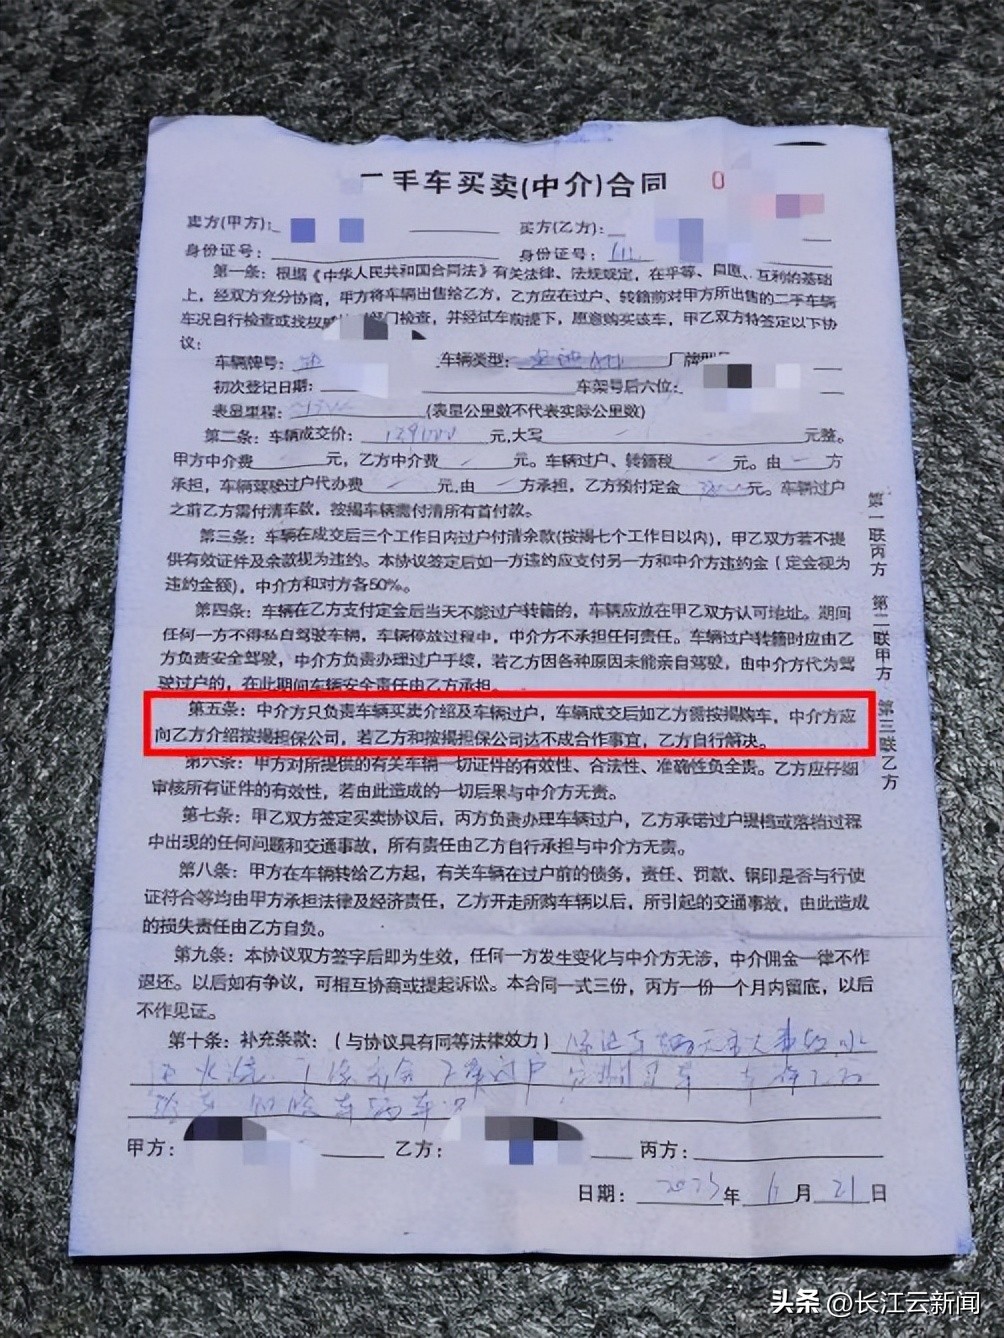 二手车买卖(中介)合同 0
卖方(甲方): 买方(乙方):
身份证号: 身份证号:
第一条: 根据《中华人民共和国合同法》有关法律、法规规定, 在平等、自愿、互利的基础
上, 经双方充分协商, 甲方将车辆出售给乙方, 乙方应在过户、转籍前对甲方所出售的二手车辆
车况自行检查或找权威 部门检查, 并经试车前提下, 愿意购买该车, 甲乙双方特签定以下协
议:
车辆牌号: 车辆类型: 奥迪 厂牌型号
初次登记日期: 车架号后六位:
表显里程: (表显公里数不代表实际公里数)
第二条: 车辆成交价: 129000 元,大写 元整。
甲方中介费 元, 乙方中介费 元。车辆过户、转籍税 元。由 方
承担, 车辆驾驶过户代办费 元,由 方承担, 乙方预付定金 元。车辆过户
之前乙方需付清车款, 按揭车辆需付清所有首付款。
第三条: 车辆在成交后三个工作日内过户付清余款(按揭七个工作日以内), 甲乙双方若不提
供有效证件及余款视为违约。本协议签定后如一方违约应支付另一方和中介方违约金 (定金视为
违约金额), 中介方和对方各50%。
第四条: 车辆在乙方支付定金后当天不能过户转籍的, 车辆应放在甲乙双方认可地址。期间
任何一方不得私自驾驶车辆, 车辆停放过程中, 中介方不承担任何责任。车辆过户转籍时应由乙
方负责安全驾驶, 中介方负责办理过户手续, 若乙方因各种原因未能亲自驾驶, 由中介方代为驾
驶过户的, 在此期间车辆安全责任由乙方承担。
第五条: 中介方只负责车辆买卖介绍及车辆过户, 车辆成交后如乙方需按揭购车, 中介方应
向乙方介绍按揭担保公司, 若乙方和按揭担保公司达不成合作事宜, 乙方自行解决。
第六条: 甲方对所提供的有关车辆一切证件的有效性、合法性、准确性负全责。乙方应仔细
审核所有证件的有效性, 若由此造成的一切后果与中介方无责。
第七条: 甲乙双方签定买卖协议后, 丙方负责办理车辆过户, 乙方承诺过户提档或落档过程
中出现的任何问题和交通事故, 所有责任由乙方自行承担与中介方无责。
第八条: 甲方在车辆转给乙方起, 有关车辆在过户前的债务, 责任、罚款、钢印是否与行使
证符合等均由甲方承担法律及经济责任, 乙方开走所购车辆以后, 所引起的交通事故, 由此造成
的损失责任由乙方自负。
第九条: 本协议双方签字后即为生效, 任何一方发生变化与中介方无涉, 中介佣金一律不作
退还。以后如有争议, 可相互协商或提起诉讼。本合同一式三份, 丙方一份一个月内留底, 以后
不作见证。
第十条: 补充条款: (与协议具有同等法律效力) 保证车辆无重大事故,水
甲方: 乙方: 丙方:
日期: 2023年 6月 21日
第一联丙方 第二联甲方 第三联乙方
头条 @长江云新闻